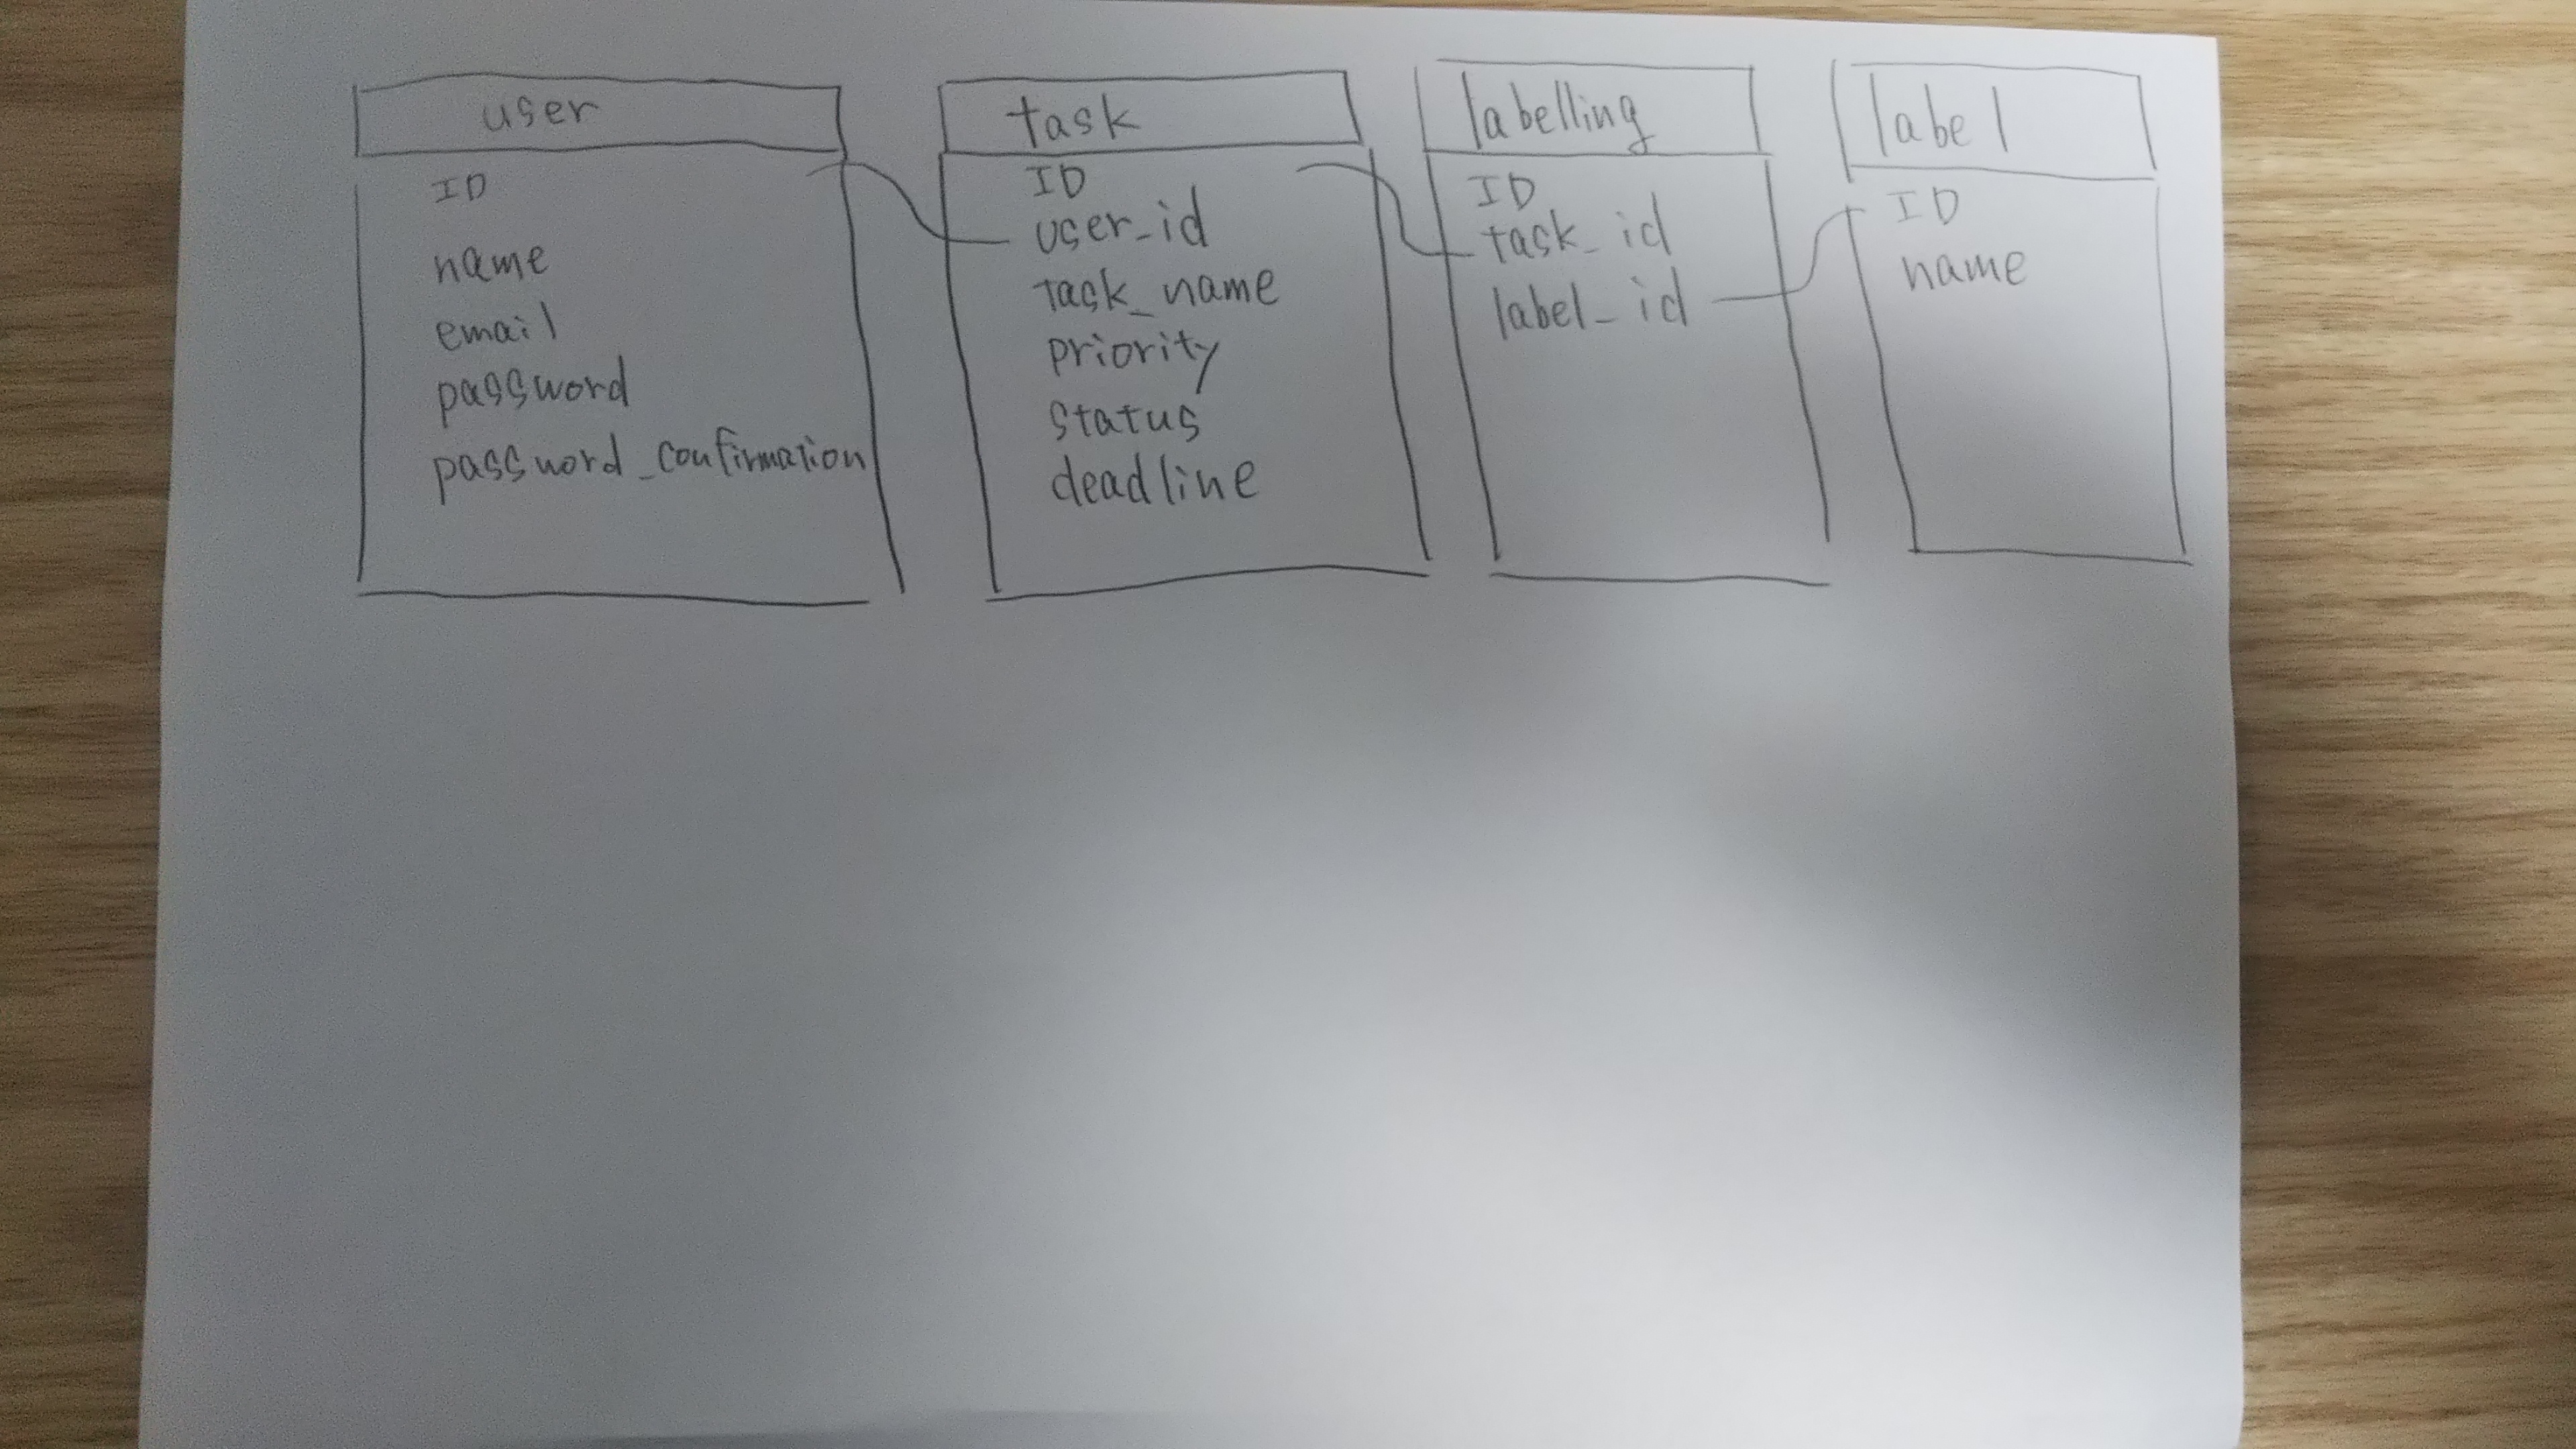 user
ID
name
email
password
password_confirmation
task
ID
user_id
task_name
priority
status
deadline
labelling
ID
task_id
label_id
label
ID
name